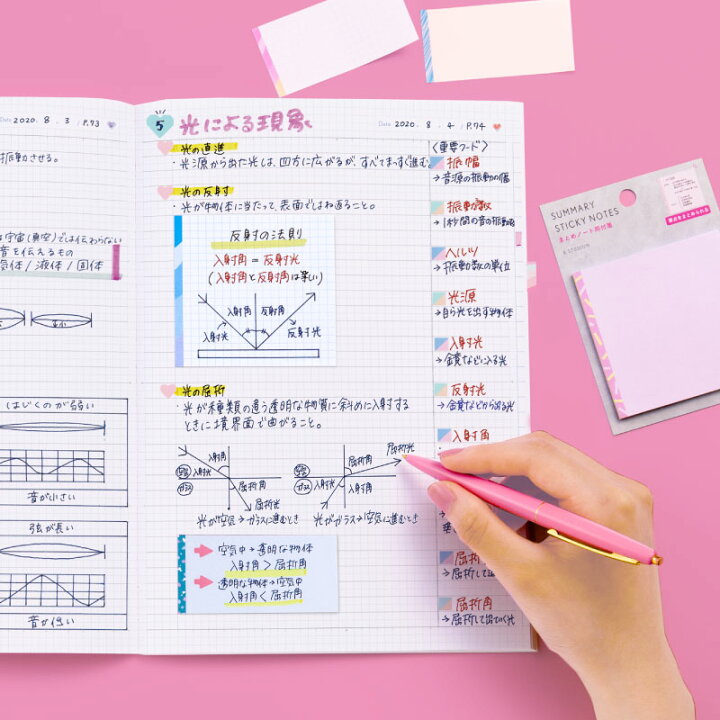 Date 2020. 8. 3 /P.73
振動させる。
は宇宙(真空)では伝わらない
音を伝えるもの
気体/液体/固体
はじくのが弱い
音が小さい
弦が長い
音が低い
5 光による現象
Date 2020. 8. 4 /P.74
光の直進
・光源から出た光は、四方に広がるが、すべてまっすぐ進む
光の反射
・光が物体に当たって、表面ではね返ること。
反射の法則
入射角=反射光
(入射角と反射角は等しい)
入射角 反射角
入射光 反射光
光の屈折
・光が種類の違う透明な物質に斜めに入射する
ときに境界面で曲がること。
入射角
入射光 屈折角
ガラス
屈折光
屈折角 屈折光
入射光 入射角
ガラス
光が空気→ガラスに進むとき
光がガラス→空気に進むとき
空気中→透明な物体
入射角>屈折角
透明な物体→空気中
入射角<屈折角
<重要ワード>
振幅
→音源の振動の幅
振動数
→1秒間の音の振動数
ヘルツ
→振動数の単位
光源
→自ら光を出す物体
入射光
→金鏡などに入る光
反射光
→金鏡などから出る光
入射角
屈折
屈折角
→屈折して出ていく光
SUMMARY
STICKY NOTES
まとめノート用付箋
要点をまとめられる